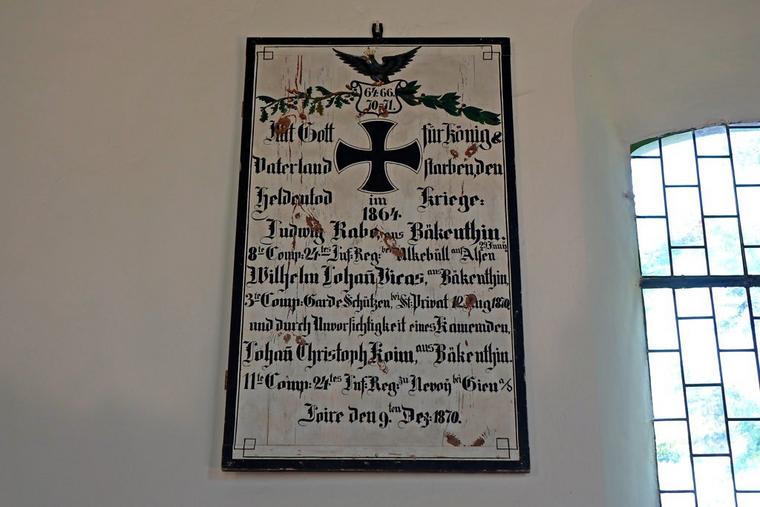 64. 66.
70-71.
Mit Gott für König &
Vaterland starben den
Heldentod im Kriege:
1864.
Ludwig Rabe, aus Bäkenthin.
8te Comp: 24tes Inf: Reg: bei Ulkebüll auf Alsen 29 Juny
Wilhelm Johañ Vicas, aus Bäkenthin,
3te Comp: Garde Schützen, bei St: Privat Aug 1870
und durch Unvorsichtigkeit eines Kameraden,
Johañ Christoph Koim, aus Bäkenthin.
11te Comp: 24tes Inf: Reg: zu Nevoÿ bei Gien a/s
Loire den 9.ten Dez: 1870.